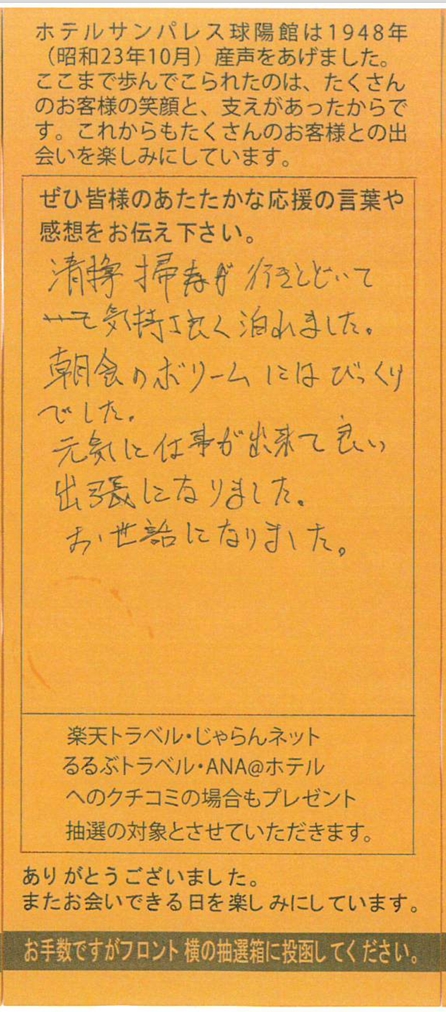 ホテルサンパレス球陽館は1948年
（昭和23年10月）産声をあげました。
ここまで歩んでこられたのは、たくさん
のお客様の笑顔と、支えがあったからで
す。これからもたくさんのお客様との出
会いを楽しみにしています。
ぜひ皆様のあたたかな応援の言葉や
感想をお伝え下さい。
清掃が行きとどいて
気持ち良く泊れました。
朝食のボリームにはびっくり
でした。
元気に仕事が出来て良い
出張になりました。
お世話になりました。
楽天トラベル・じゃらんネット
るるぶトラベル・ANA@ホテル
へのクチコミの場合もプレゼント
抽選の対象とさせていただきます。
ありがとうございました。
またお会いできる日を楽しみにしています。
お手数ですがフロント横の抽選箱に投函してください。